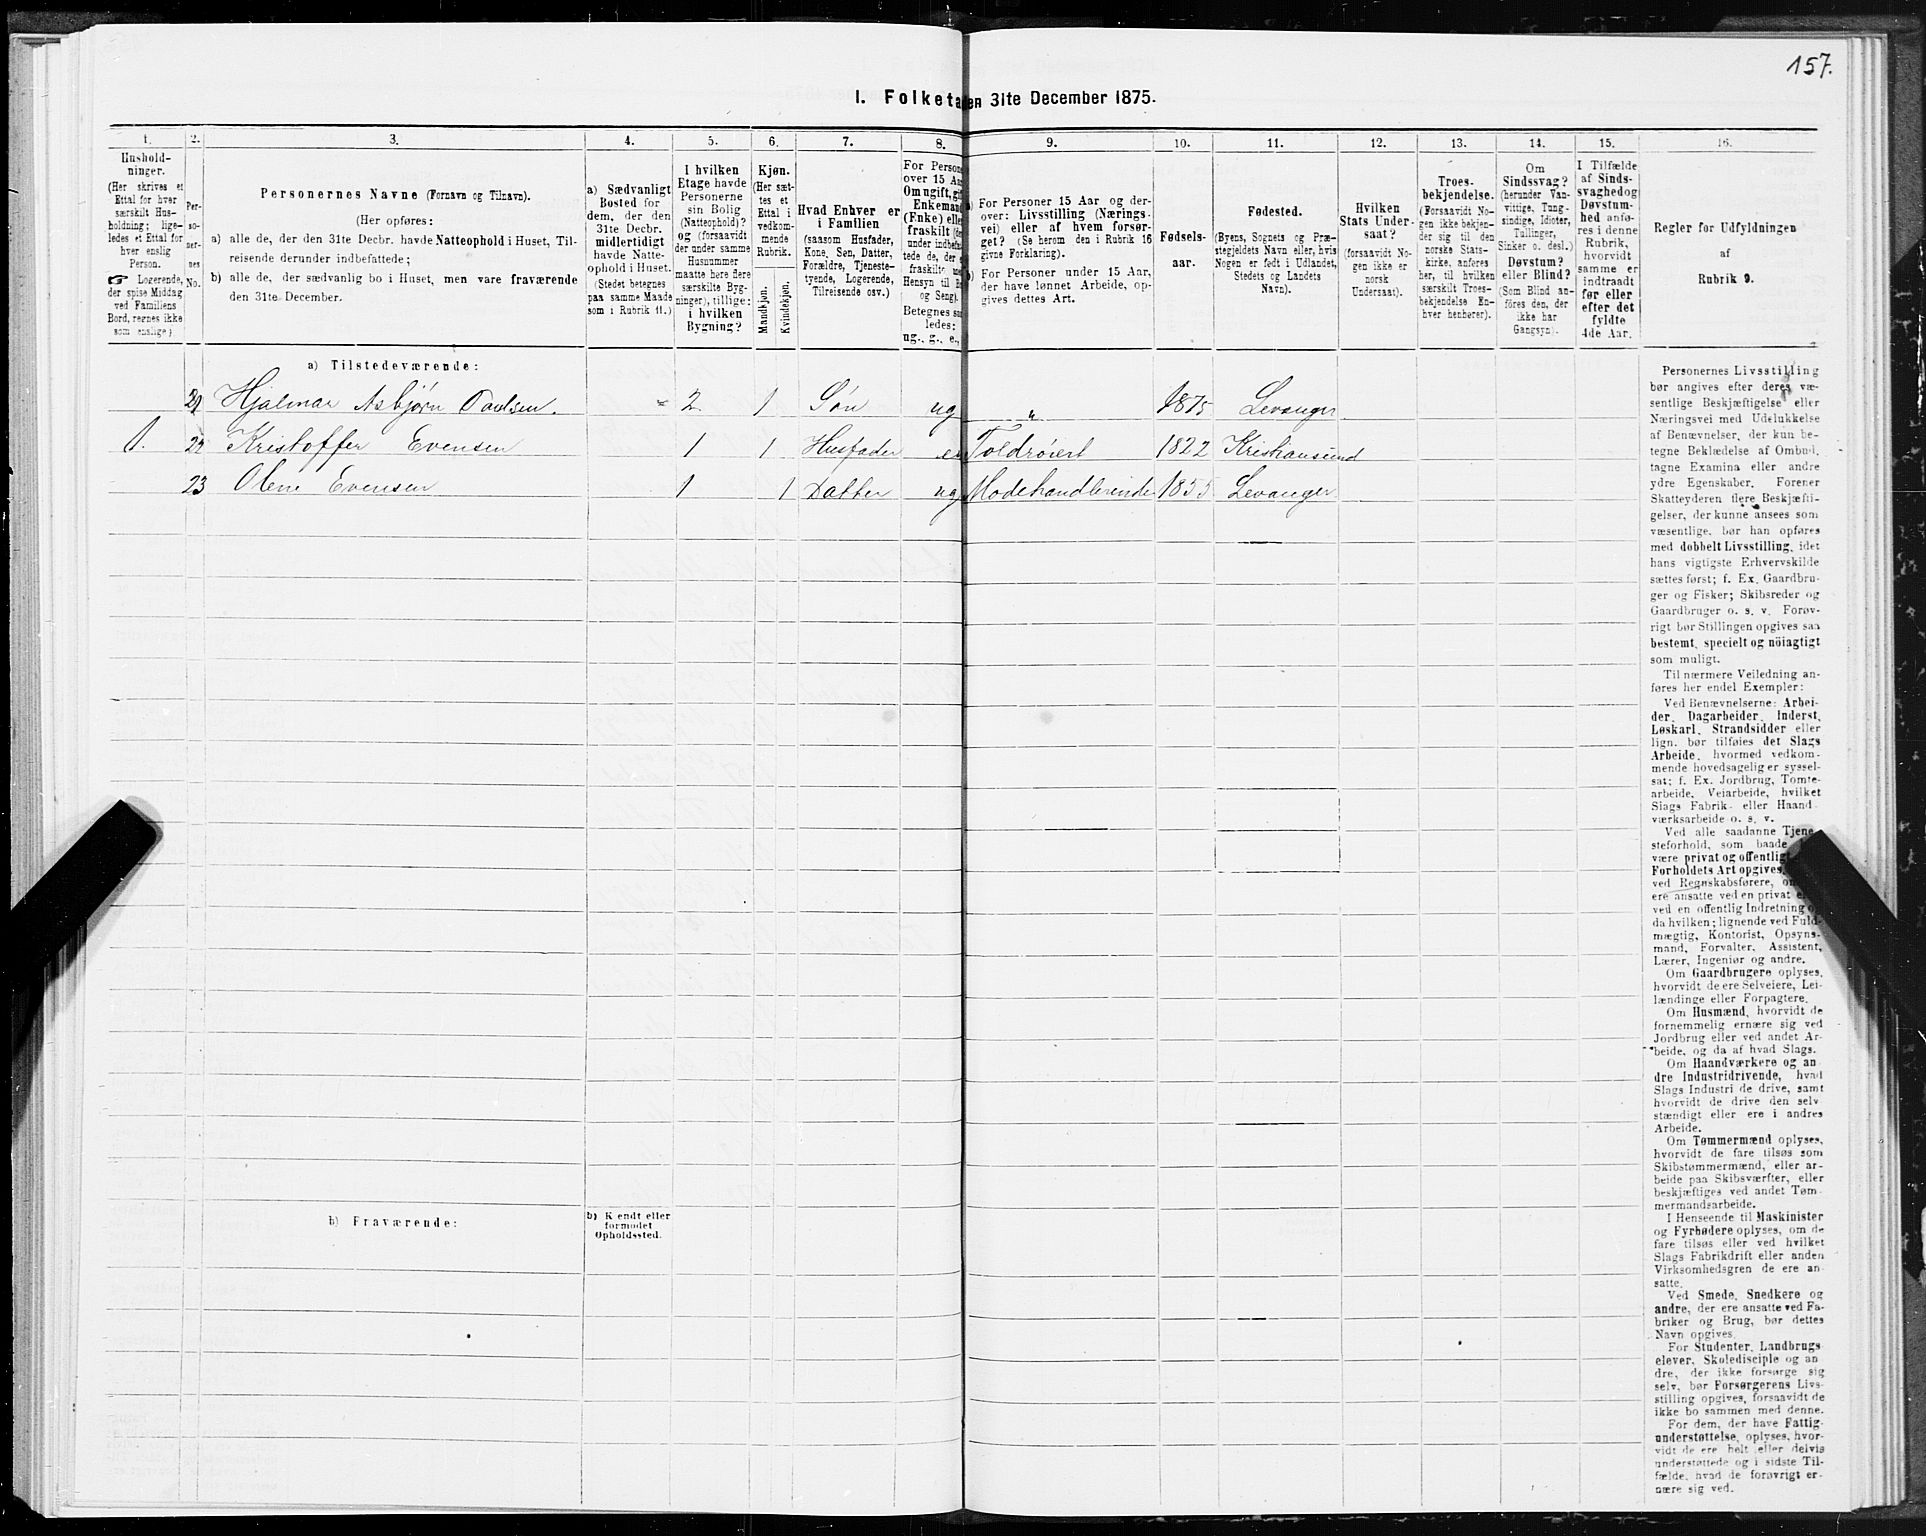 157.
I. Folketa en 31te December 1875.
1. 2. 3. 4. 5. 6. 7. 8. 9. 10. 11. 12. 13. 14. 15. 16.
Hushold-
ninger.
(Her skrives et
Ettal for hver
særskilt Hus-
holdning; lige-
ledes et Ettal for
hver enslig
Person.
☞ Logerende,
der spise Middag
ved Familiens
Bord, regnes ikke
som enslige)
Per-
so-
ner-
nes
No.
Personernes Navne (Fornavn og Tilnavn).
(Her opføres:
a) alle de, der den 31te Decbr. havde Natteophold i Huset, Til-
reisende derunder indbefattede;
b) alle de, der sædvanlig bo i Huset, men vare fraværende
den 31te December.
a) Sædvanligt
Bosted for
dem, der den
31te Decbr.
midlertidigt
havde Natte-
ophold i Huset.
(Stedet betegnes
paa samme Maade
som i Rubrik 11.)
I hvilken
Etage havde
Personerne
sin Bolig
(Natteophold)?
og (forsaavidt
der under samme
Husnummer
maatte høre flere
særskilte Byg-
ninger), tillige:
i hvilken
Bygning?
Kjøn.
(Her sæt-
tes et
Ettal i
vedkom-
mende
Rubrik.
Mandkjøn.
Kvindekjøn.
Hvad Enhver er
i Familien
(saasom Husfader,
Kone, Søn, Datter,
Forældre, Tjeneste-
tyende, Logerende,
Tilreisende osv.)
For Person
over 15 Aa
Om ugift, gif
Enkeman
(Enke) elle
fraskilt (he
under indbefa
tede de, der e
fraskilte
Hensyn til B
og Seng).
Betegnes saa
ledes:
ug., g., e.,
a) For Personer 15 Aar og der-
over: Livsstilling (Nærings-
vei) eller af hvem forsør-
get? (Se herom den i Rubrik 16
givne Forklaring).
b) For Personer under 15 Aar,
der have lønnet Arbeide, op-
gives dettes Art.
Fødsels-
aar.
Fødested.
(Byens, Sognets og Præ-
stegjeldets Navn eller, hvis
Nogen er født i Udlandet,
Stedets og Landets
Navn).
Hvilken
Stats Under-
saat?
(forsaavidt No-
gen ikke er
norsk
Undersaat).
Troes-
bekjendelse.
(Forsaavidt No-
gen ikke bekjen-
der sig til den
norske Stats-
kirke, anføres
her, til hvilken
særskilt Troes-
bekjendelse En-
hver henhører).
Om
Sindssvag?
(herunder Van-
vittige, Tung-
sindige, Idioter,
Tullinger,
Sinker o. desl.)
Døvstum?
eller Blind?
(Som Blind an-
føres den, der
ikke har
Gangsyn).
I Tilfælde
af Sinds-
svaghed og
Døvstum-
hed anfø-
res i denne
Rubrik,
hvorvidt
samme er
indtraadt
før eller
efter det
fyldte
4de Aar.
Regler for Udfyldningen
af
Rubrik 9.
a) Tilstedeværende:
21 Hjalmar Asbjørn Paulsen. 2. 1 Søn ug „ 1875 Levanger.
1. 22 Kristoffer Evensen 1 1 Husfader e Toldroiert 1822 Kristiansund
23 Olene Evensen 1 1 Datter ug Modehandlerinde 1855 Levanger
b) Fraværende:
b) Kjendt eller
formodet
Opholdssted.
Personernes Livsstilling
bør angives efter deres væ-
sentlige Beskjæftigelse eller
Næringsvei med Udelukkelse
af Benævnelser, der kun be-
tegne Beklædelse af Ombud,
tagne Examina eller andre
ydre Egenskaber. Forener
Skatteyderen flere Beskjæfti-
gelser, der kunne ansees som
væsentlige, bør han opføres
med dobbelt Livsstilling, idet
hans vigtigste Erhvervskilde
sættes først; f. Ex. Gaardbru-
ger og Fisker; Skibsreder og
Gaardbruger o. s. v. Forøv-
rigt bør Stillingen opgives saa
bestemt, specielt og nøiagtigt
som muligt.
Til nærmere Veiledning an-
føres her endel Exempler:
Ved Benævnelserne: Arbei-
der, Dagarbeider, Inderst,
Løskarl, Strandsidder eller
lign. bør tilføies det Slags
Arbeide, hvormed vedkom-
mende hovedsagelig er syssel-
sat; f. Ex. Jordbrug, Tomte-
arbeide, Veiarbeide, hvilket
Slags Fabrik- eller Haand
værksarbeide o. s. v.
Ved alle saadanne Tjene
steforhold, som baade
være privat og offentlig
Forholdets Art opgives,
ved Regnskabsførere,
ere ansatte ved en privat
ved en offentlig Indretning
da hvilken; lignende ved Fuld-
mægtig, Kontorist, Opsyns-
mand, Forvalter, Assistent,
Lærer, Ingeniør og andre.
Om Gaardbrugere oplyses,
hvorvidt de ere Selveiere, Lei-
lændinge eller Forpagtere.
Om Husmænd, hvorvidt de
fornemmelig ernære sig ved
Jordbrug eller ved andet Ar-
beide, og da af hvad Slags.
Om Haandværkere og an
dre Industridrivende, hvad
Slags Industri de drive, samt
hvorvidt de drive den selv
stændigt eller ere i andres
Arbeide.
Om Tømmermænd oplyses,
hvorvidt de fare tilsøs som
Skibstømmermænd, eller ar-
beide paa Skibsværfter, eller
beskjæftiges ved andet Tøm
mermandsarbeide.
I Henseende til Maskinister
og Fyrbødere oplyses, om de
fare tilsøs eller ved hvilket
Slags Fabrikdrift eller anden
Virksomhedsgren de ere an-
satte.
Ved Smede, Snedkere og
andre, der ere ansatte ved Fa-
briker og Brug, bør dettes
Navn opgives.
For Studenter, Landbrugs
elever, Skoledisciple og an
dre, der ikke forsørge sig
selv, bør Forsørgerens Livs-
stilling opgives, forsaavidt de
ikke bo sammen med denne.
For dem, der have Fattig-
understøttelse, oplyses, hvor-
vidt de ere helt eller delvis
understøttede og i sidste Til-
fælde, hvad de forøvrigt er-
nære sig ved.